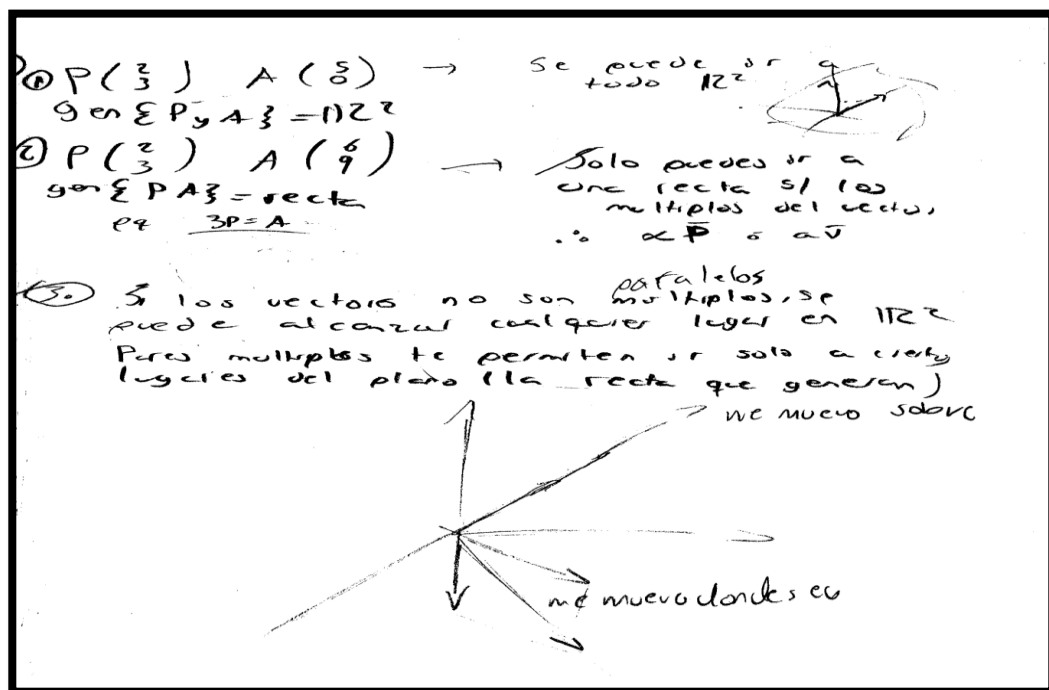 ① P(2 3) A(5 0) → Se puede ir a
todo R²
gen{P y A} = R²
② P(2 3) A(6 9) → Solo puedes ir a
gen{P A} = recta una recta s/ los
pq 3P = A multiplos del vector,
∴ αP̄ ó av̄
3. Si los vectores no son multiplos, se
paralelos
puede alcanzar cualquier lugar en R²
Pares multiplos te permiten ir solo a
lugares del plano (la recta que generan)
me muevo sobre
me muevo donde sea